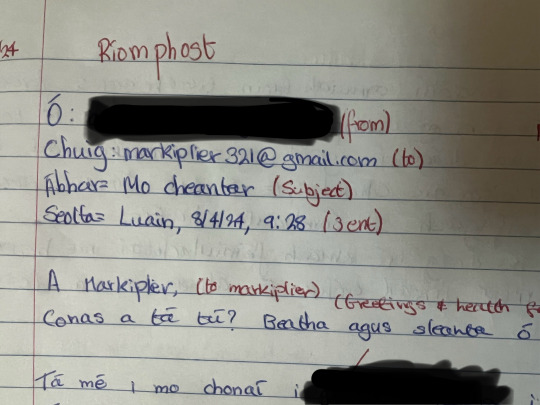 24 Ríomphost
Ó: (from)
Chuig: markiplier321@gmail.com (to)
Ábhar= Mo cheantar (Subject)
Seolta= Luain, 8/4/24, 9:28 (sent)
A Markiplier, (to markiplier) (Greetings & health
Conas a tá tú? Beatha agus sleante ó
Tá mé i mo chonaí i